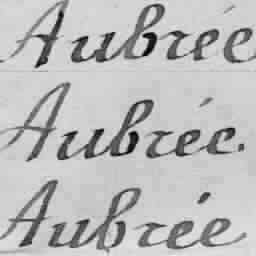 Aubrée
Aubrée.
Aubrée